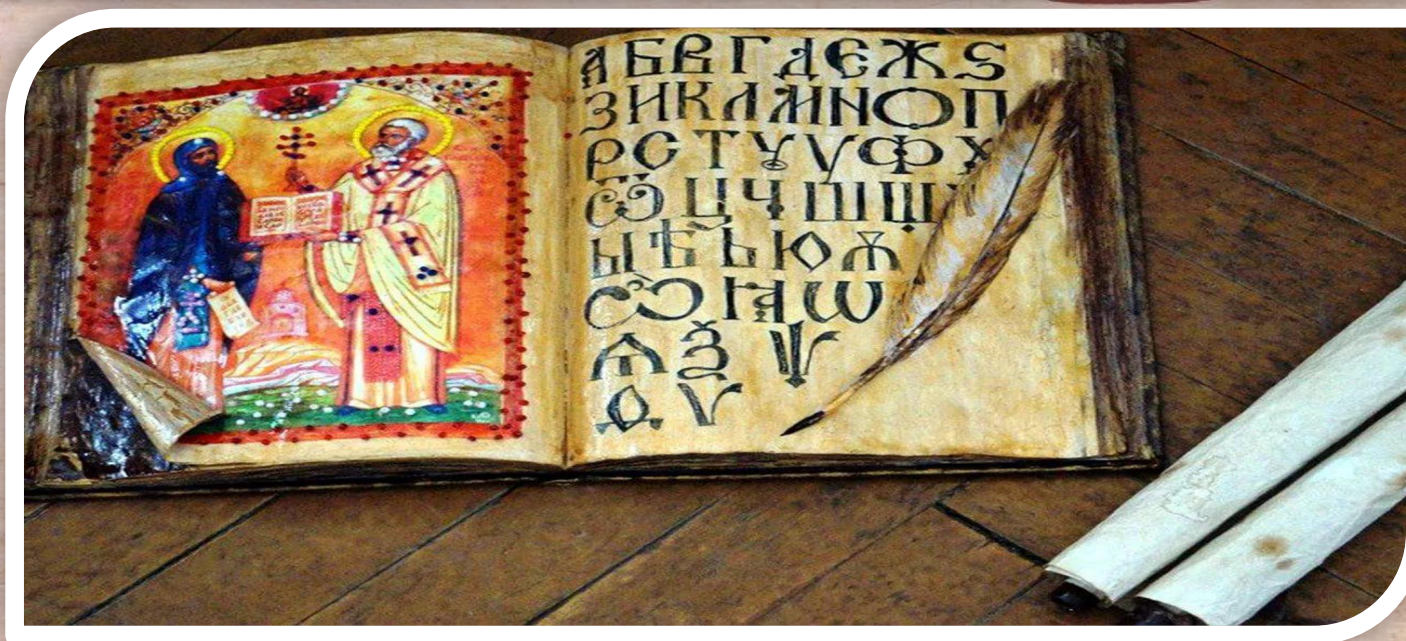 А Б В Г Д Є Ж Ѕ
З И К Л М Н О П
Р С Т Ѹ Ѵ Ф Х
Ѿ Ц Ч Ш Щ
Ы Ѣ Ь Ю Ѫ
Ѽ Ꙗ Ѡ
Ѧ Ѯ Ѱ
Ѳ Ѵ